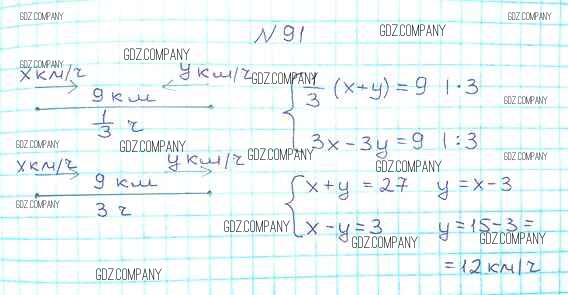 N 91
GDZ.COMPANY
GDZ.COMPANY
GDZ.COMPANY
GDZ.COMPANY
GDZ.COMPANY
x км/ч y км/ч
9 км
1/3 ч
GDZ.COMPANY
{ 1/3 (x+y) = 9 | · 3
GDZ.COMPANY
3x - 3y = 9 | : 3
GDZ.COMPANY
GDZ.COMPANY
GDZ.COMPANY
GDZ.COMPANY
x км/ч y км/ч
9 км
3 ч
GDZ.COMPANY
GDZ.COMPANY
{ x + y = 27 y = x - 3
GDZ.COMPANY
x - y = 3 y = 15 - 3 =
GDZ.COMPANY
GDZ.COMPANY
= 12 км/ч
GDZ.COMPANY